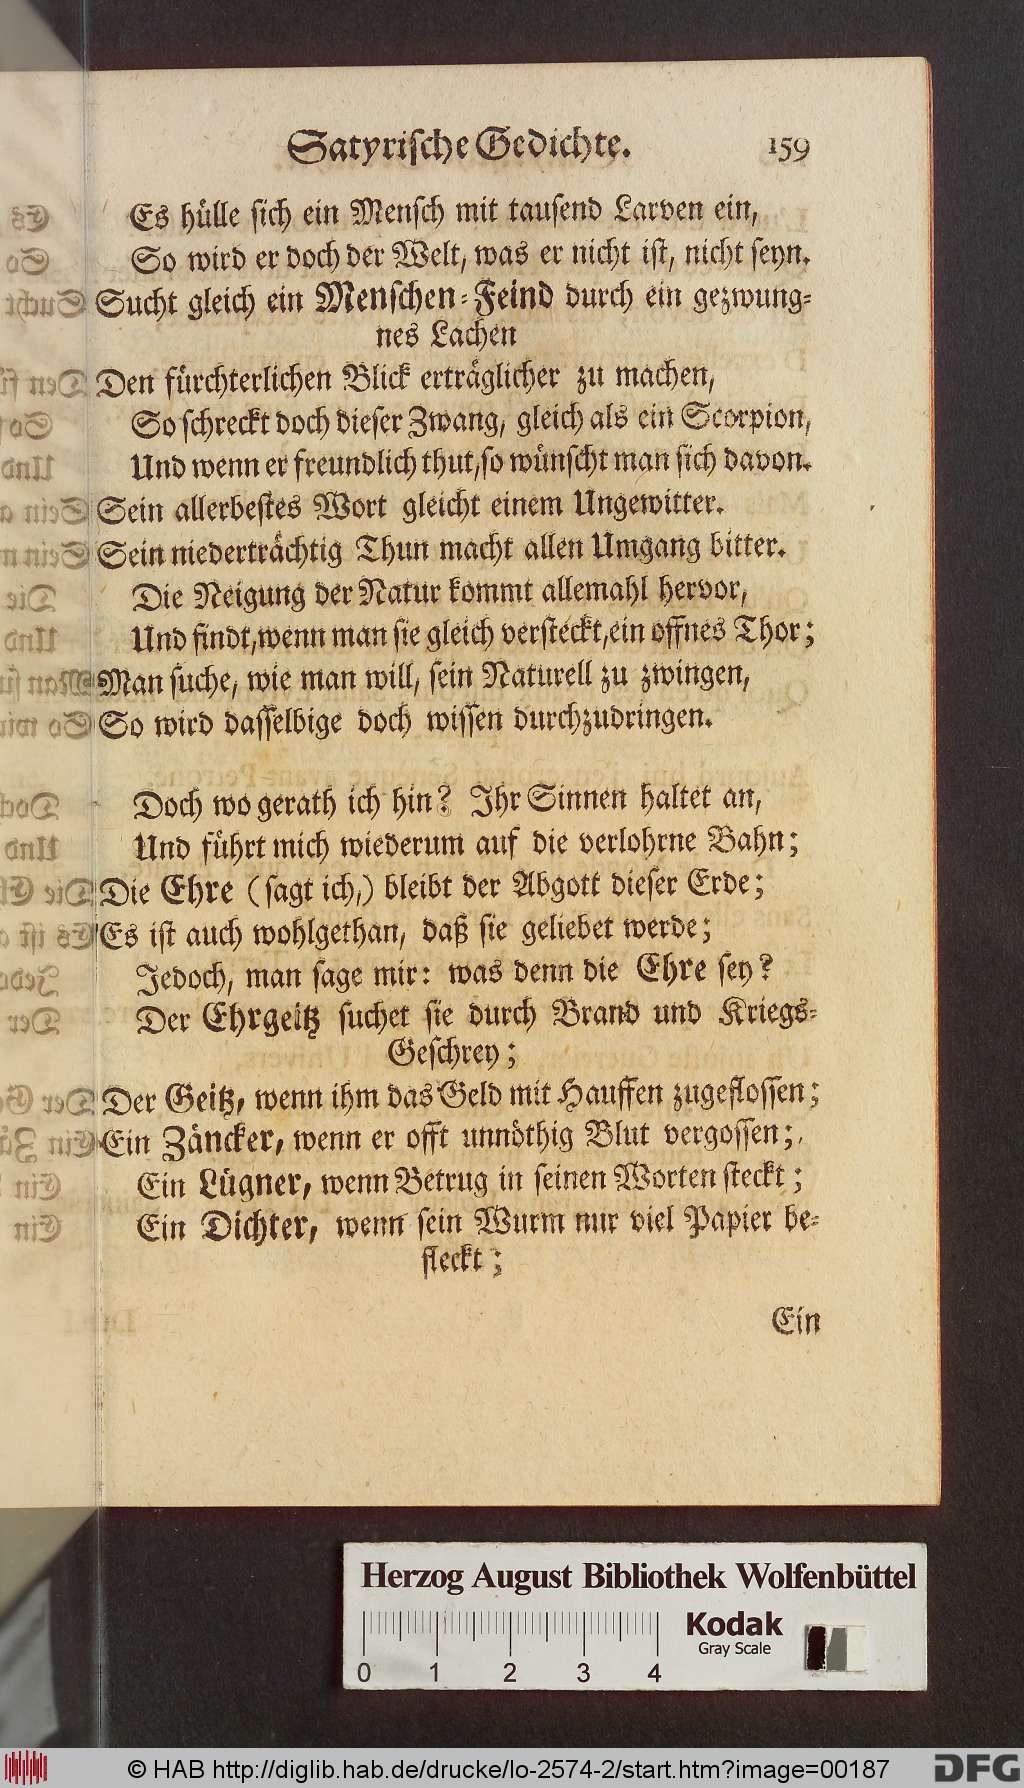 Satyrische Gedichte. 159
Es hülle sich ein Mensch mit tausend Larven ein,
So wird er doch der Welt, was er nicht ist, nicht seyn.
Sucht gleich ein Menschen-Feind durch ein gezwung-
nes Lachen
Den fürchterlichen Blick erträglicher zu machen,
So schreckt doch dieser Zwang, gleich als ein Scorpion,
Und wenn er freundlich thut, so wünscht man sich davon.
Sein allerbestes Wort gleicht einem Ungewitter.
Sein niederträchtig Thun macht allen Umgang bitter.
Die Neigung der Natur kommt allemahl hervor,
Und findt, wenn man sie gleich versteckt, ein offnes Thor;
Man suche, wie man will, sein Naturell zu zwingen,
So wird dasselbige doch wissen durchzudringen.
Doch wo gerath ich hin? Ihr Sinnen haltet an,
Und führt mich wiederum auf die verlohrne Bahn;
Die Ehre (sagt ich,) bleibt der Abgott dieser Erde;
Es ist auch wohlgethan, daß sie geliebet werde;
Jedoch, man sage mir: was denn die Ehre sey?
Der Ehrgeitz suchet sie durch Brand und Kriegs-
Geschrey;
Der Geitz, wenn ihm das Geld mit Hauffen zugeflossen;
Ein Zäncker, wenn er offt unnöthig Blut vergossen;
Ein Lügner, wenn Betrug in seinen Worten steckt;
Ein Dichter, wenn sein Wurm nur viel Papier be-
fleckt;
Ein
Herzog August Bibliothek Wolfenbüttel
Kodak
Gray Scale
0 1 2 3 4
© HAB http://diglib.hab.de/drucke/lo-2574-2/start.htm?image=00187
DFG